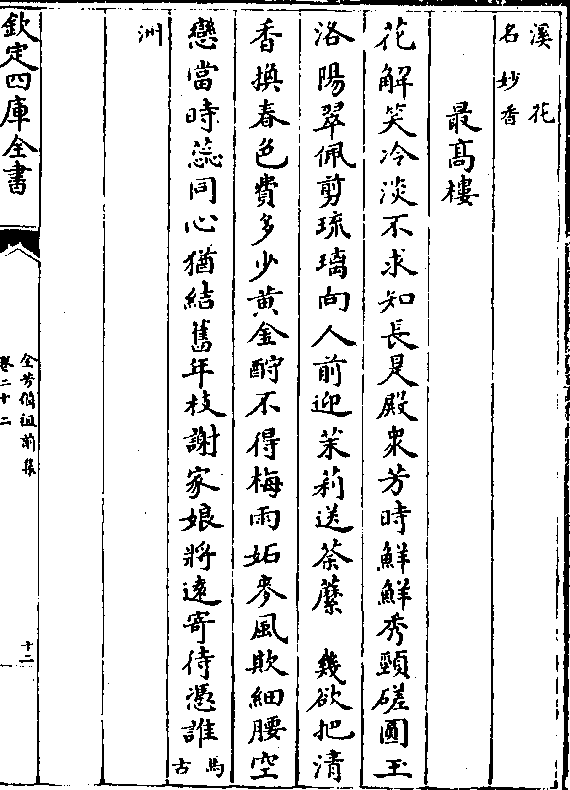 溪花
名妙香
最髙樓
花解笑冷淡不求知長是殿衆芳時鮮鮮秀頸磋圓玉
洛陽翠佩剪琉璃向人前迎茉莉送荼蘼　幾欲把清
香換春色費多少黄金酹不得梅雨妬麥風欺細腰空
戀當時蕊同心猶結舊年枝謝家娘將逺寄待憑誰馬古
洲
欽定四庫全書
全芳備祖前集
卷二十二
十二